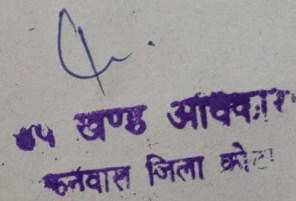 उप खण्ड अधिकारी
कनवास जिला कोटा